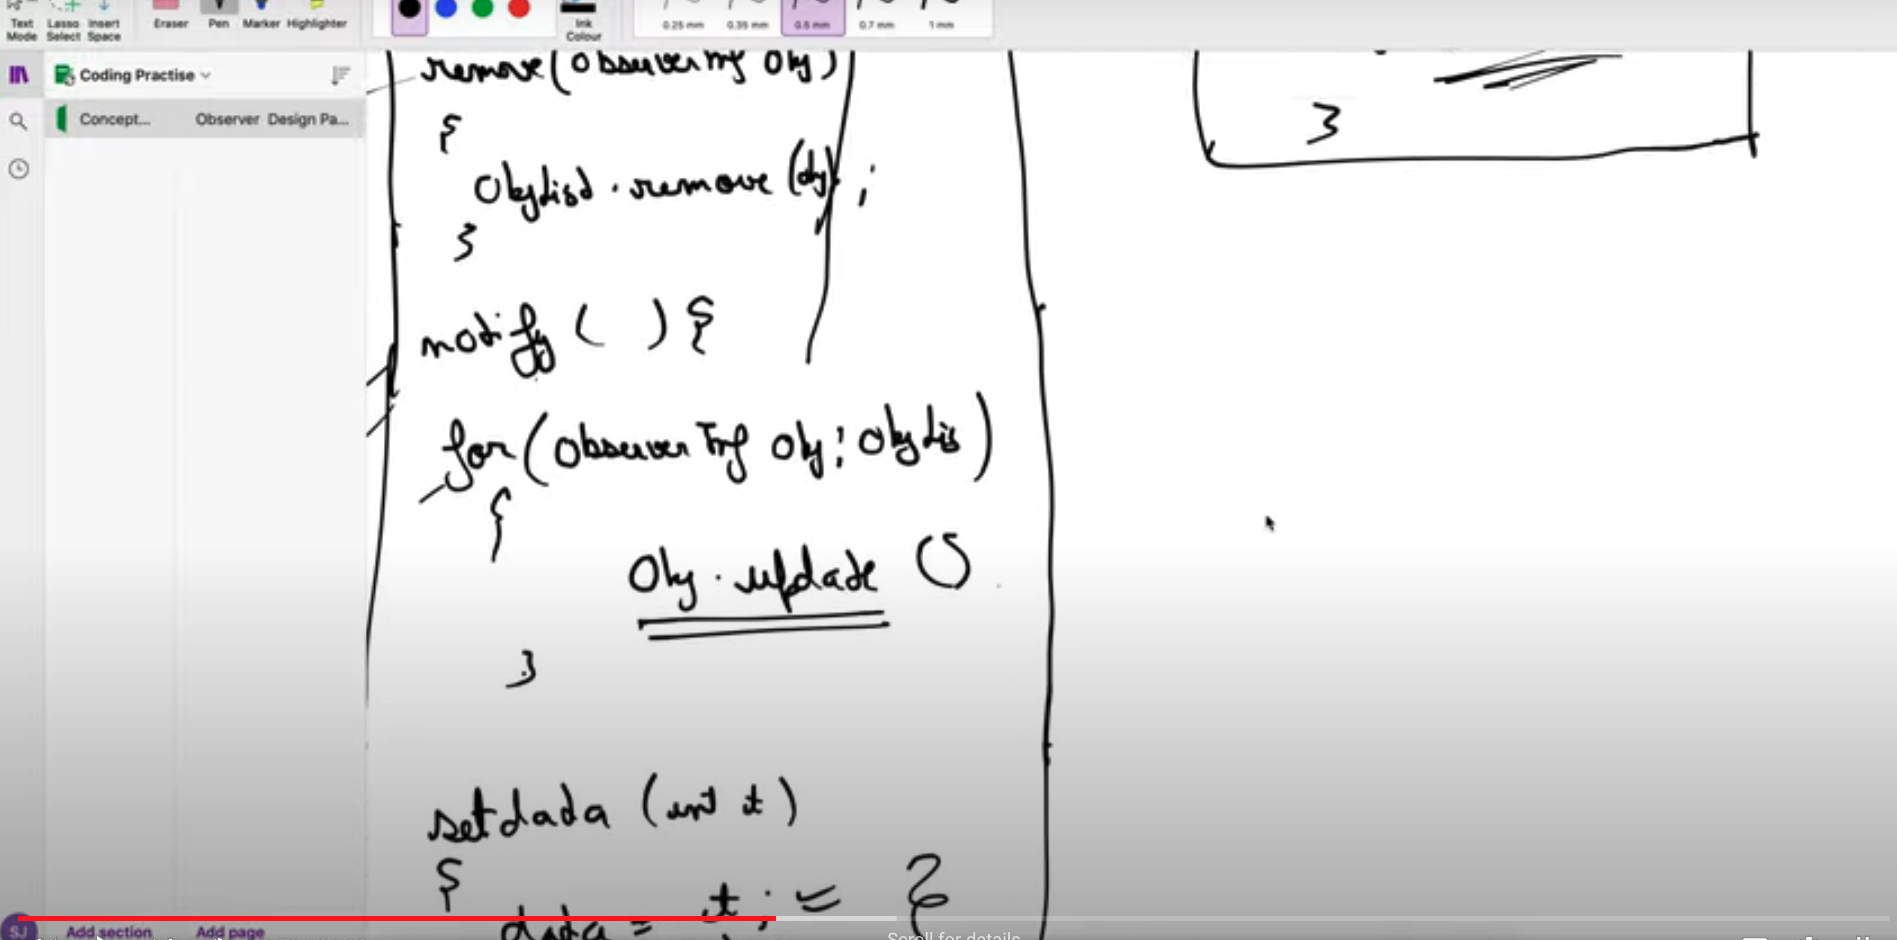 Text Mode
Lasso Select
Insert Space
Eraser
Pen
Marker
Highlighter
Ink Colour
0.25 mm
0.35 mm
0.5 mm
0.7 mm
1 mm
Coding Practise
Concept...
Observer Design Pa...
remove(Observer Obj)
{
ObjList.remove(obj);
}
notify( ){
for(Observer Obj: Obj Lis)
{
Obj.update ()
}
3
setdata (int t)
{
data = t;
SJ
Add section
Add page
Scroll for details